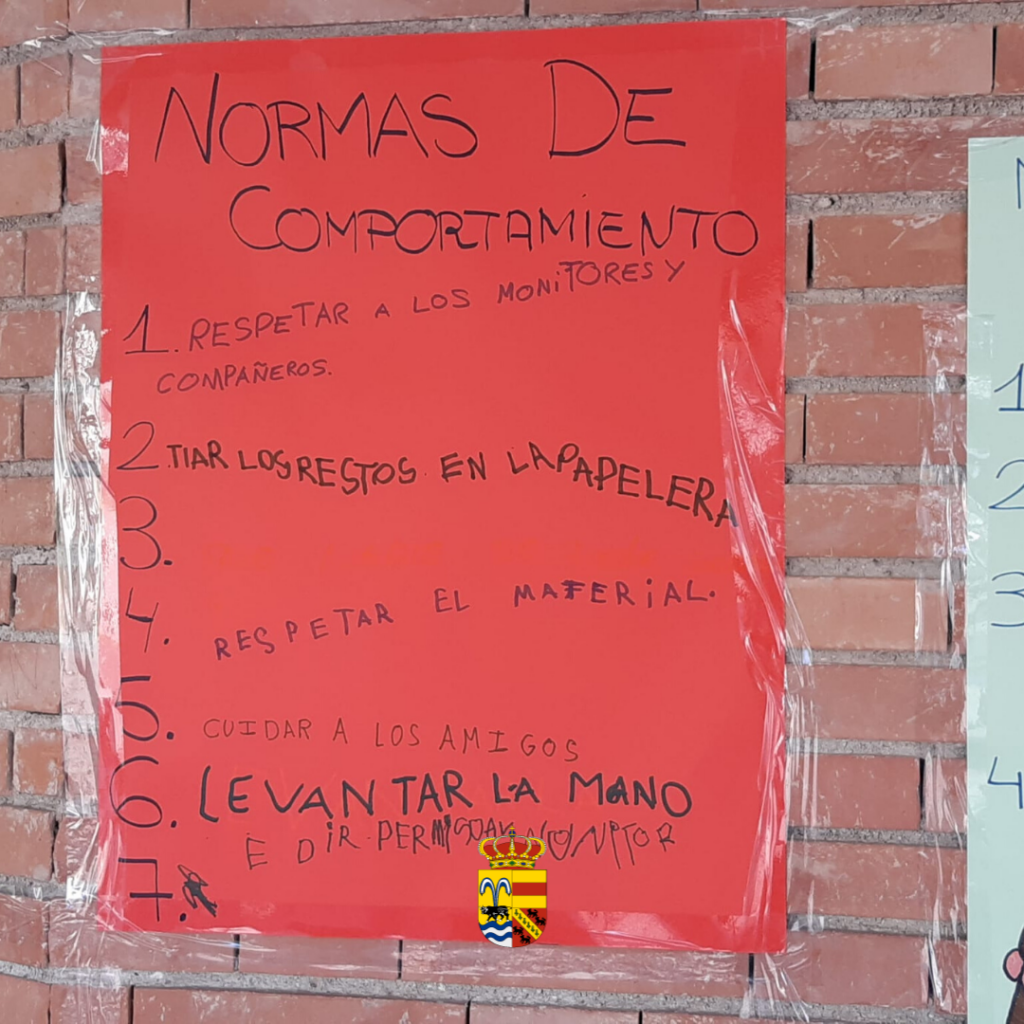 NORMAS DE
COMPORTAMIENTO
1. RESPETAR A LOS MONITORES Y
COMPAÑEROS.
2. TIAR LOS RESTOS EN LA PAPELERA
3.
4. RESPETAR EL MATERIAL.
5. CUIDAR A LOS AMIGOS
6. LEVANTAR LA MANO
E DIR PERMISO AL MONITOR
7.
1
2
3
4